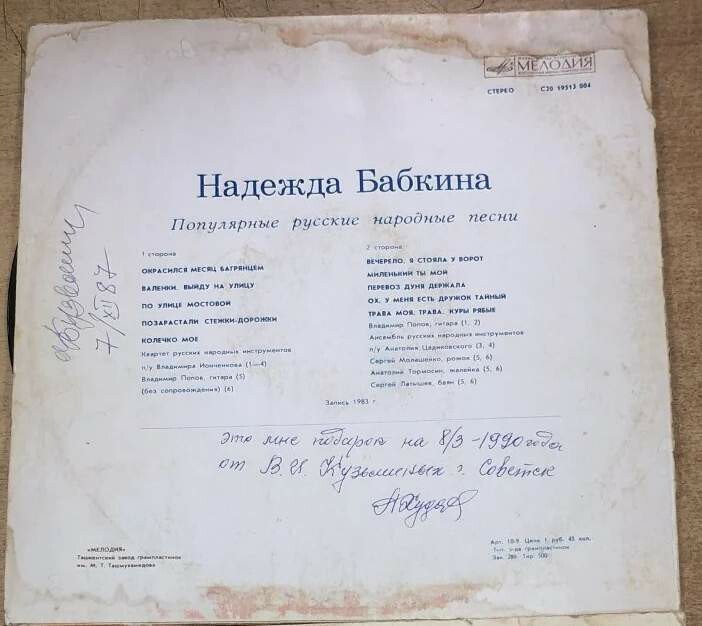 МЕЛОДИЯ
СТЕРЕО С20 19513 004
Надежда Бабкина
Популярные русские народные песни
1 сторона
ОКРАСИЛСЯ МЕСЯЦ БАГРЯНЦЕМ
ВАЛЕНКИ. ВЫЙДУ НА УЛИЦУ
ПО УЛИЦЕ МОСТОВОЙ
ПОЗАРАСТАЛИ СТЕЖКИ-ДОРОЖКИ
КОЛЕЧКО МОЕ
Квартет русских народных инструментов
п/у Владимира Ионченкова (1—4)
Владимир Попов, гитара (5)
(без сопровождения) (6)
2 сторона
ВЕЧЕРЕЛО. Я СТОЯЛА У ВОРОТ
МИЛЕНЬКИЙ ТЫ МОЙ
ПЕРЕВОЗ ДУНЯ ДЕРЖАЛА
ОХ, У МЕНЯ ЕСТЬ ДРУЖОК ТАЙНЫЙ
ТРАВА МОЯ, ТРАВА. КУРЫ РЯБЫЕ
Владимир Попов, гитара (1, 2)
Ансамбль русских народных инструментов
п/у Анатолия Цадиковского (3, 4)
Сергей Молашенко, рожок (5, 6)
Анатолий Тормосин, жалейка (5, 6)
Сергей Латышев, баян (5, 6)
Запись 1983 г.
7/XII 87
Это мне подарок на 8/3 -1990 года
от В.И. Кузьминых г. Советск
«МЕЛОДИЯ»
Ташкентский завод грампластинок
им. М. Т. Ташмухамедова
Арт. 10-9. Цена 1 руб. 45 коп.
Тип. з-да грампластинок
Зак. 286 Тир. 500